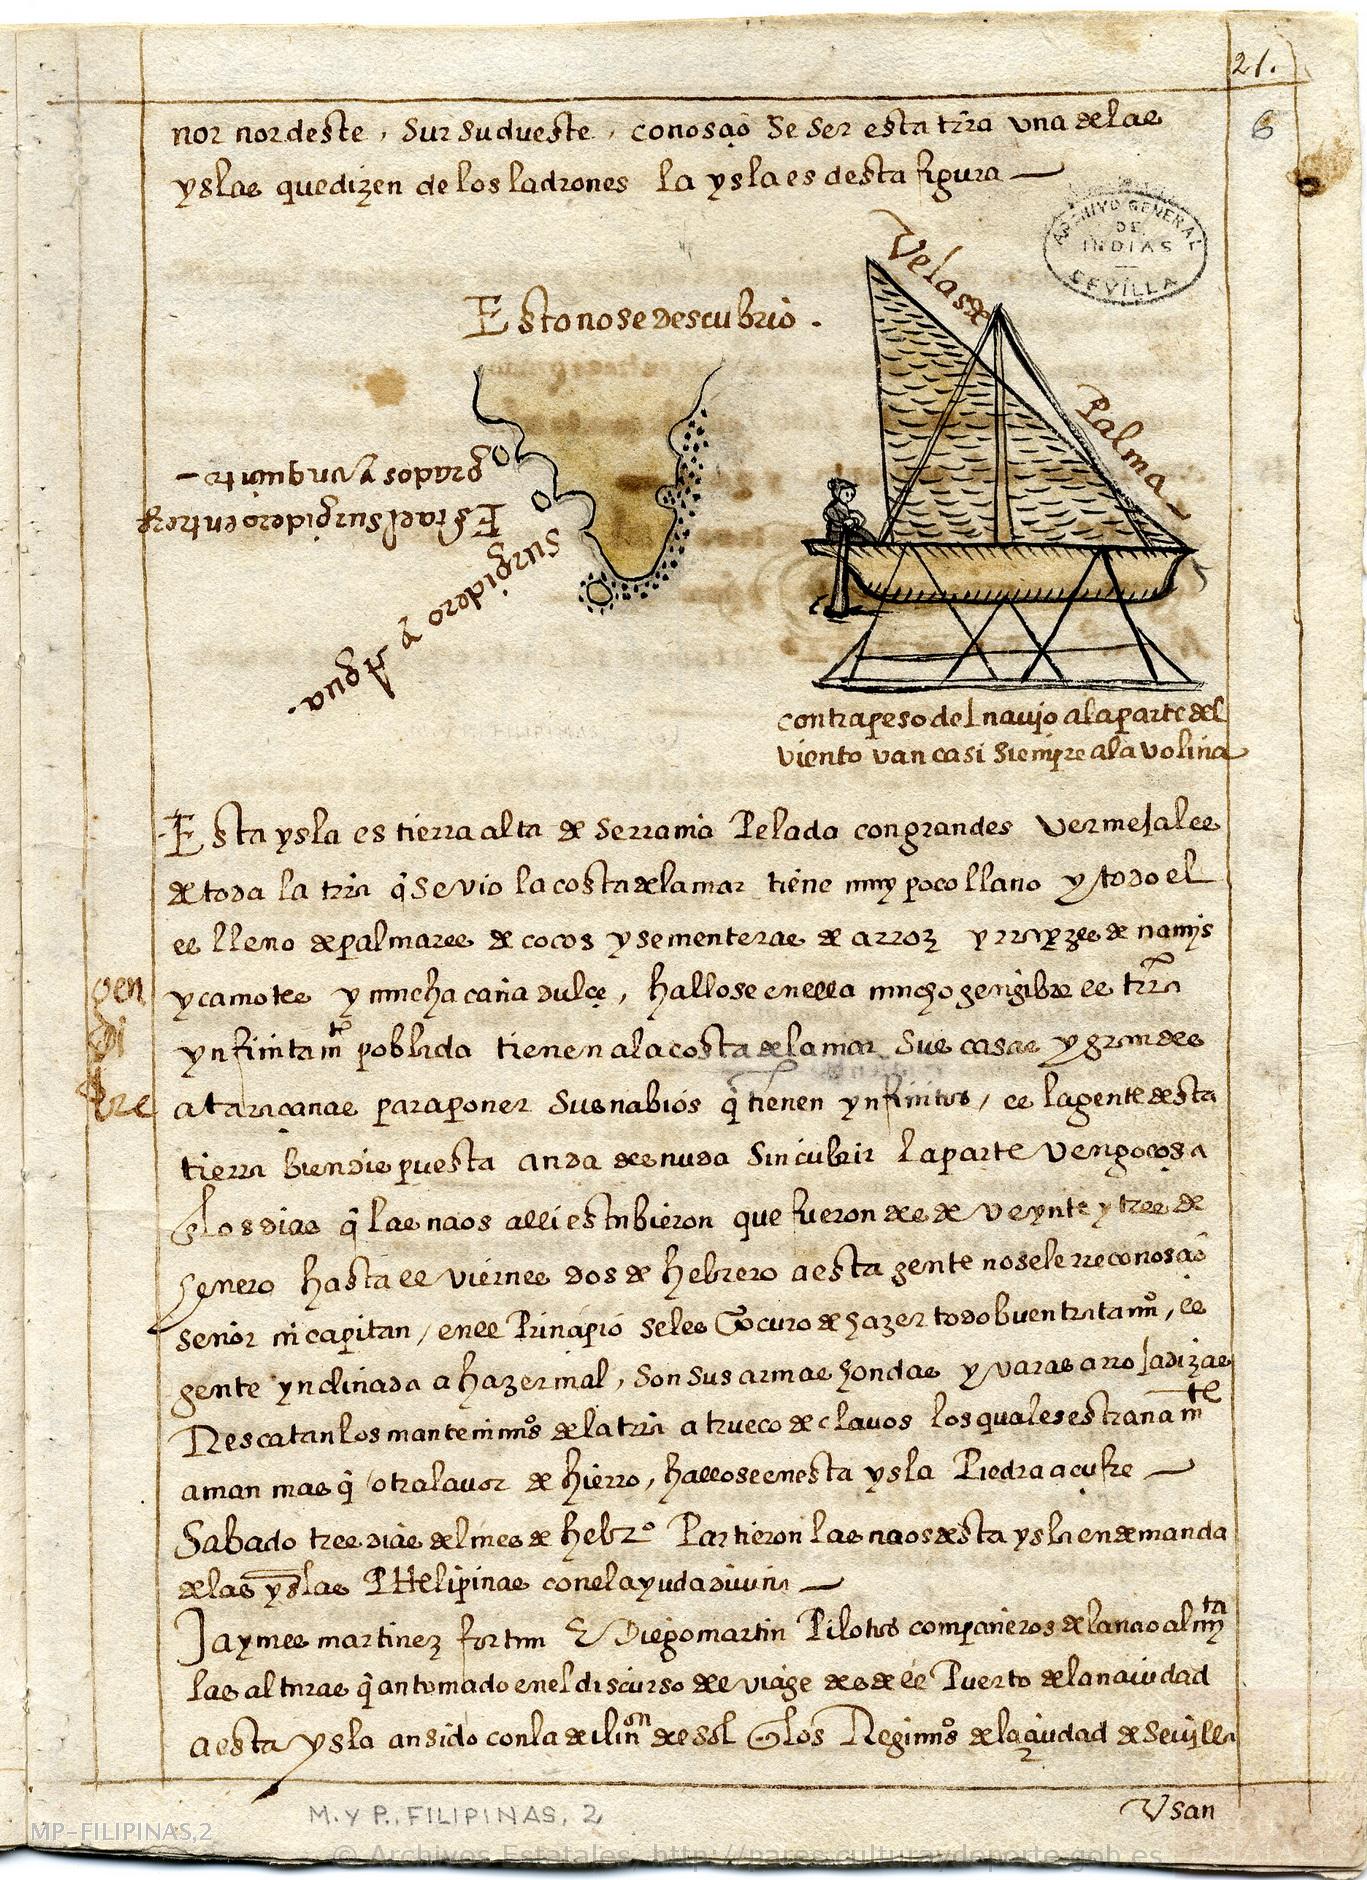 21.
6
nor nordeste, sursudueste, conosçio se ser esta trra vna de las
yslas que dizen de los ladrones la ysla es desta figura —
ARCHIVO GENERAL
DE
INDIAS
SEVILLA
Velas de
Palma
Esto no se descubrio.
grados y un quarto —
Esta el surgidero en treze
surgidero y Agua.
contrapeso del nauio a la parte del
viento van casi siempre a la volina
Esta ysla es tierra alta de serrania Pelada con grandes vermejales
de toda la trra q̃ se vio la costa de la mar tiene muy poco llano y todo el
es lleno de palmares de cocos y sementeras de arroz y rrayzes de namis
y camotes y mucha caña dulçe, hallose en ella mucho gengibre es trra
gen
gi
bre
ynfinitamte poblada tienen a la costa de la mar sus casas y grandes
ataraçanas para poner sus nabios q̃ tienen ynfinitos, es la gente desta
tierra bien dispuesta anda desnuda sin cubrir la parte vengoçosa
los dias q̃ las naos alli estubieron que fueron desde veynte y tres de
henero hasta el viernes dos de hebrero a esta gente no se le rreconosçio
señor ni capitan, en el Prinçipio se les Procuro de hazer todo buen tratamo, es
gente ynclinada a hazer mal, son sus armas hondas y varas arrojadizas
Rescatan los mantenimos de la trra a trueco de clauos los quales estranamte
aman mas q̃ otra lauor de hierro, hallose en esta ysla Piedra açufre —
Sabado tres dias del mes de hebro Partieron las naos desta ysla en demanda
de las yslas PHelipinas con el ayuda diuina —
Jaymes martinez fortun E Diego martin Pilotos compañeros de la nao almta
las alturas q̃ an tomado en el discurso del viage desde el Puerto de la nauidad
a esta ysla an sido con la declinon del sol E los Regimos de la çiudad de Seuilla
Vsan
M. Y P., FILIPINAS, 2
MP-FILIPINAS,2
© Archivos Estatales, http://pares.culturaydeporte.gob.es